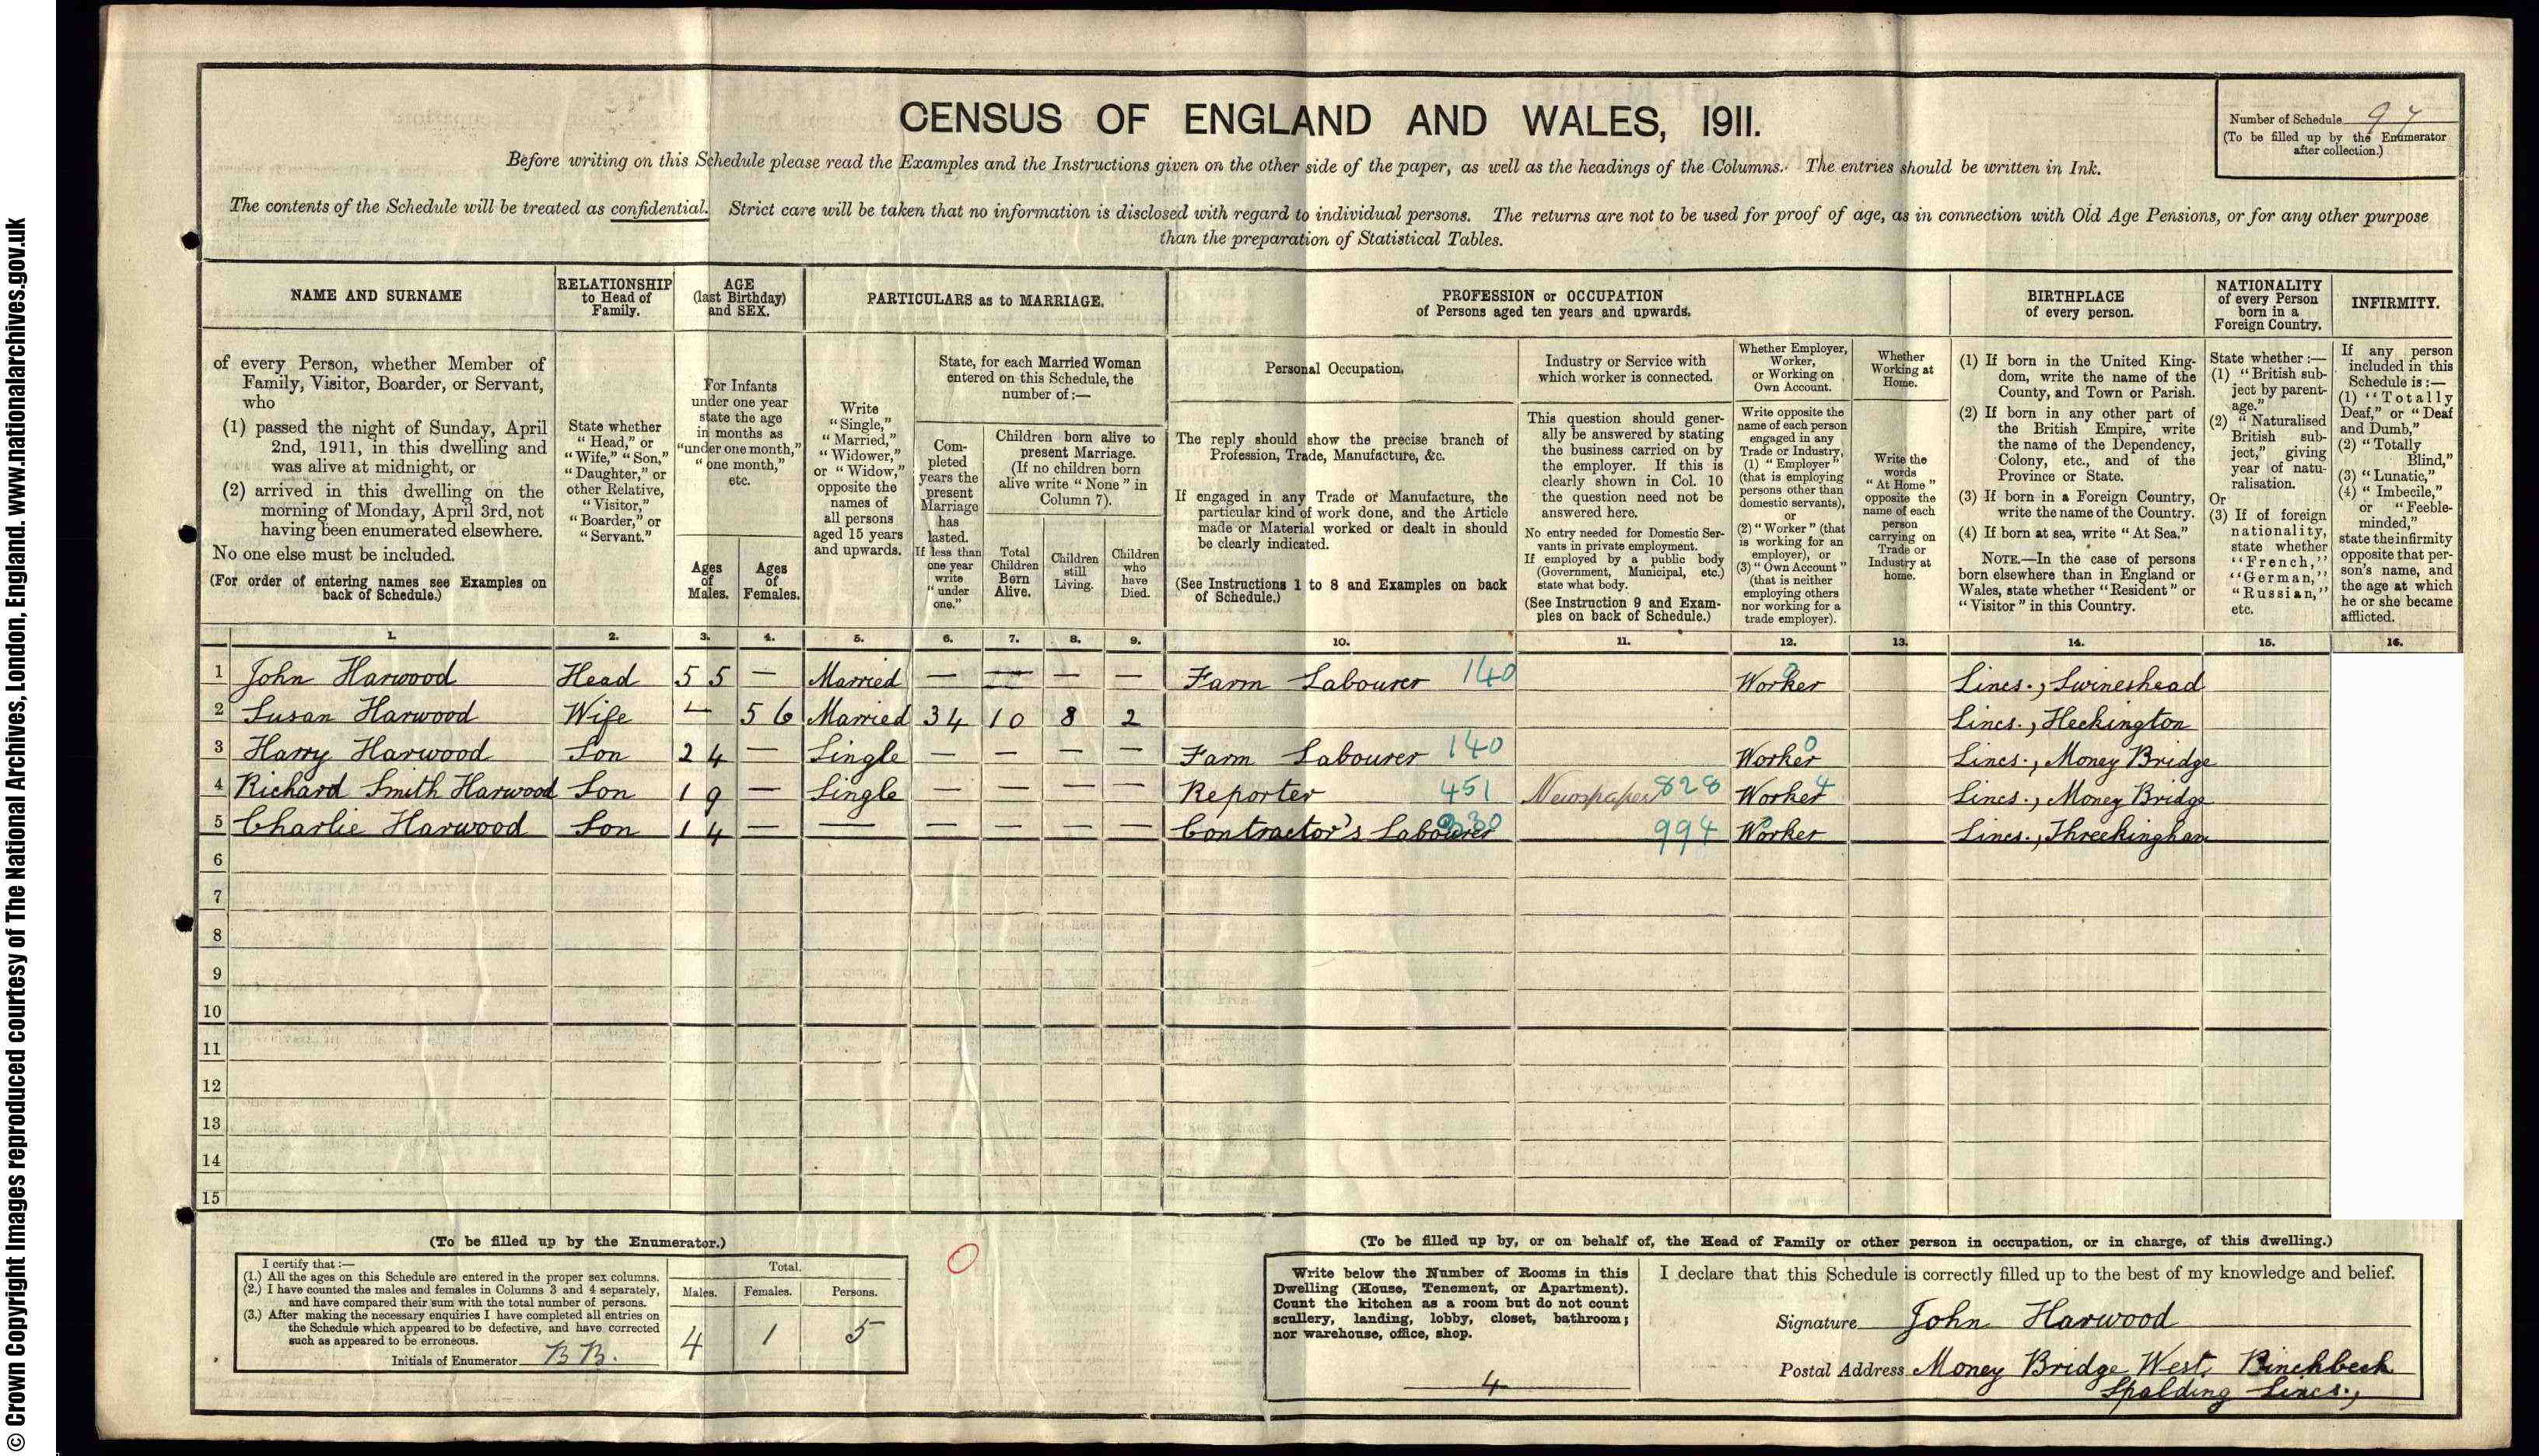 © Crown Copyright Images reproduced courtesy of The National Archives, London, England. www.nationalarchives.gov.uk
CENSUS OF ENGLAND AND WALES, 1911.
Number of Schedule 97
(To be filled up by the Enumerator
after collection.)
Before writing on this Schedule please read the Examples and the Instructions given on the other side of the paper, as well as the headings of the Columns. The entries should be written in Ink.
The contents of the Schedule will be treated as confidential. Strict care will be taken that no information is disclosed with regard to individual persons. The returns are not to be used for proof of age, as in connection with Old Age Pensions, or for any other purpose
than the preparation of Statistical Tables.
NAME AND SURNAME
RELATIONSHIP
to Head of
Family.
AGE
(last Birthday)
and SEX.
PARTICULARS as to MARRIAGE.
PROFESSION or OCCUPATION
of Persons aged ten years and upwards.
BIRTHPLACE
of every person.
NATIONALITY
of every Person
born in a
Foreign Country.
INFIRMITY.
of every Person, whether Member of
Family, Visitor, Boarder, or Servant,
who
(1) passed the night of Sunday, April
2nd, 1911, in this dwelling and
was alive at midnight, or
(2) arrived in this dwelling on the
morning of Monday, April 3rd, not
having been enumerated elsewhere.
No one else must be included.
(For order of entering names see Examples on
back of Schedule.)
State whether
"Head," or
"Wife," "Son,"
"Daughter," or
other Relative,
"Visitor,"
"Boarder," or
"Servant."
For Infants
under one year
state the age
in months as
"under one month,"
"one month,"
etc.
Ages
of
Males.
Ages
of
Females.
Write
"Single,"
"Married,"
"Widower,"
or "Widow,"
opposite the
names of
all persons
aged 15 years
and upwards.
State, for each Married Woman
entered on this Schedule, the
number of :—
Com-
pleted
years the
present
Marriage
has
lasted.
If less than
one year
write
"under
one."
Children born alive to
present Marriage.
(If no children born
alive write "None" in
Column 7).
Total
Children
Born
Alive.
Children
still
Living.
Children
who
have
Died.
Personal Occupation.
The reply should show the precise branch of
Profession, Trade, Manufacture, &c.
If engaged in any Trade or Manufacture, the
particular kind of work done, and the Article
made or Material worked or dealt in should
be clearly indicated.
(See Instructions 1 to 8 and Examples on back
of Schedule.)
Industry or Service with
which worker is connected.
This question should gener-
ally be answered by stating
the business carried on by
the employer. If this is
clearly shown in Col. 10
the question need not be
answered here.
No entry needed for Domestic Ser-
vants in private employment.
If employed by a public body
(Government, Municipal, etc.)
state what body.
(See Instruction 9 and Exam-
ples on back of Schedule.)
Whether Employer,
Worker,
or Working on
Own Account.
Write opposite the
name of each person
engaged in any
Trade or Industry,
(1) "Employer"
(that is employing
persons other than
domestic servants),
or
(2) "Worker" (that
is working for an
employer), or
(3) "Own Account"
(that is neither
employing others
nor working for a
trade employer).
Whether
Working at
Home.
Write the
words
"At Home"
opposite the
name of each
person
carrying on
Trade or
Industry at
home.
(1) If born in the United King-
dom, write the name of the
County, and Town or Parish.
(2) If born in any other part of
the British Empire, write
the name of the Dependency,
Colony, etc., and of the
Province or State.
(3) If born in a Foreign Country,
write the name of the Country.
(4) If born at sea, write "At Sea."
NOTE.—In the case of persons
born elsewhere than in England or
Wales, state whether "Resident" or
"Visitor" in this Country.
State whether :—
(1) "British sub-
ject by parent-
age."
(2) "Naturalised
British sub-
ject," giving
year of natu-
ralisation.
Or
(3) If of foreign
nationality,
state whether
"French,"
"German,"
"Russian,"
etc.
If any person
included in this
Schedule is :—
(1) "Totally
Deaf," or "Deaf
and Dumb,"
(2) "Totally
Blind,"
(3) "Lunatic,"
(4) "Imbecile,"
or "Feeble-
minded,"
state the infirmity
opposite that per-
son's name, and
the age at which
he or she became
afflicted.
1. 2. 3. 4. 5. 6. 7. 8. 9. 10. 11. 12. 13. 14. 15. 16.
1 John Harwood Head 55 — Married — — — — Farm Labourer 140 Worker 0 Lincs., Swineshead
2 Susan Harwood Wife — 56 Married 34 10 8 2 Lincs., Heckington
3 Harry Harwood Son 24 — Single — — — — Farm Labourer 140 Worker 0 Lincs., Money Bridge
4 Richard Smith Harwood Son 19 — Single — — — — Reporter 451 Newspaper 828 Worker 4 Lincs., Money Bridge
5 Charlie Harwood Son 14 — — — — — — Contractor's Labourer 994 Worker Lincs., Threekingham
6
7
8
9
10
11
12
13
14
15
(To be filled up by the Enumerator.)
I certify that :—
(1.) All the ages on this Schedule are entered in the proper sex columns.
(2.) I have counted the males and females in Columns 3 and 4 separately,
and have compared their sum with the total number of persons.
(3.) After making the necessary enquiries I have completed all entries on
the Schedule which appeared to be defective, and have corrected
such as appeared to be erroneous.
Initials of Enumerator BB.
Total.
Males. Females. Persons.
4 1 5
0
(To be filled up by, or on behalf of, the Head of Family or other person in occupation, or in charge, of this dwelling.)
Write below the Number of Rooms in this
Dwelling (House, Tenement, or Apartment).
Count the kitchen as a room but do not count
scullery, landing, lobby, closet, bathroom;
nor warehouse, office, shop.
4
I declare that this Schedule is correctly filled up to the best of my knowledge and belief.
Signature John Harwood
Postal Address Money Bridge West, Pinchbeck
Spalding Lincs.,